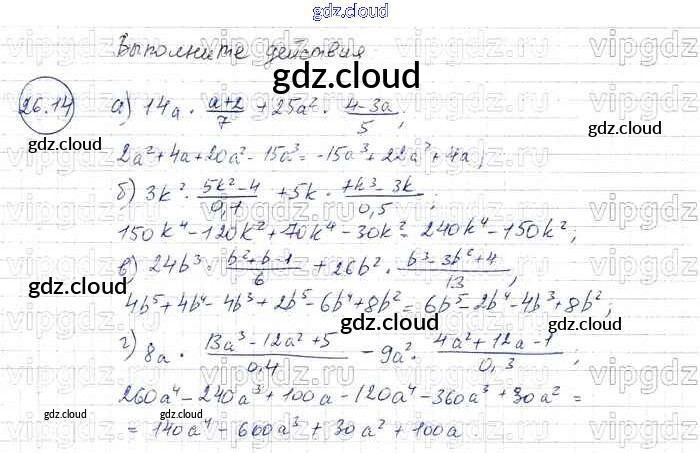 gdz.cloud
Выполните действия
gdz.cloud
26.14 а) 14a · (a+2)/7 + 25a² · (4-3a)/5;
gdz.cloud gdz.cloud
2a²+4a+20a²-15a³=-15a³+22a²+4a;
б) 3k² · (5k²-4)/0,1 + 5k · (7k³-3k)/0,5;
150k⁴-120k²+70k⁴-30k²=240k⁴-150k²;
в) 24b³ · (b²+b-1)/6 + 26b² · (b³-3b²+4)/13;
gdz.cloud gdz.cloud
4b⁵+4b⁴-4b³+2b⁵-6b⁴+8b²=6b⁵-2b⁴-4b³+8b²;
gdz.cloud
г) 8a · (13a³-12a²+5)/0,4 - 9a² · (4a²+12a-1)/0,3;
260a⁴-240a³+100a-120a⁴-360a³+30a²=
gdz.cloud gdz.cloud
=140a⁴-600a³+30a²+100a
gdz.cloud
vipgdz.ru